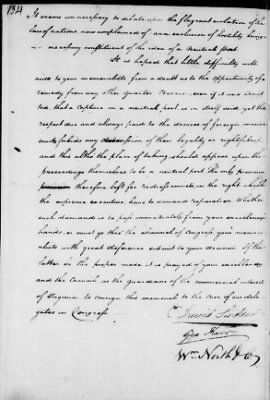 134
It seems unnecessary to dilate upon the flagrant violation of the
law of nations, now complained of an exclusion of hostility being
a necessary constituent of the idea of a neutral port.
It is hoped that little difficulty will
arise to your memorialists from a doubt as to the opportunity of a
remedy from any other quarter. Because even if it was admit
ted, that a capture in a neutral port is in itself void, yet the
respect due and always paid to the demas of foreign
forbids any of their legality or rightfulness,
and this altho the place of taking should appear upon the
proceedings themselves to be a neutral port. The only
therefore left for redress in the right which
the supreme executive have to demand reparation. Whether
such demand is to pass immediately from your excellencies
hands, or must go thro the channel of Congress your memori
alists with great deference submit to your decision. If the
latter in the paper made it is prayed of your excellency
and the Council as the guardians of the commercial interest
of Virginia to consign this memorial to the care of our dele
gates in Congress.
Geo Kerr
Wm North & Co